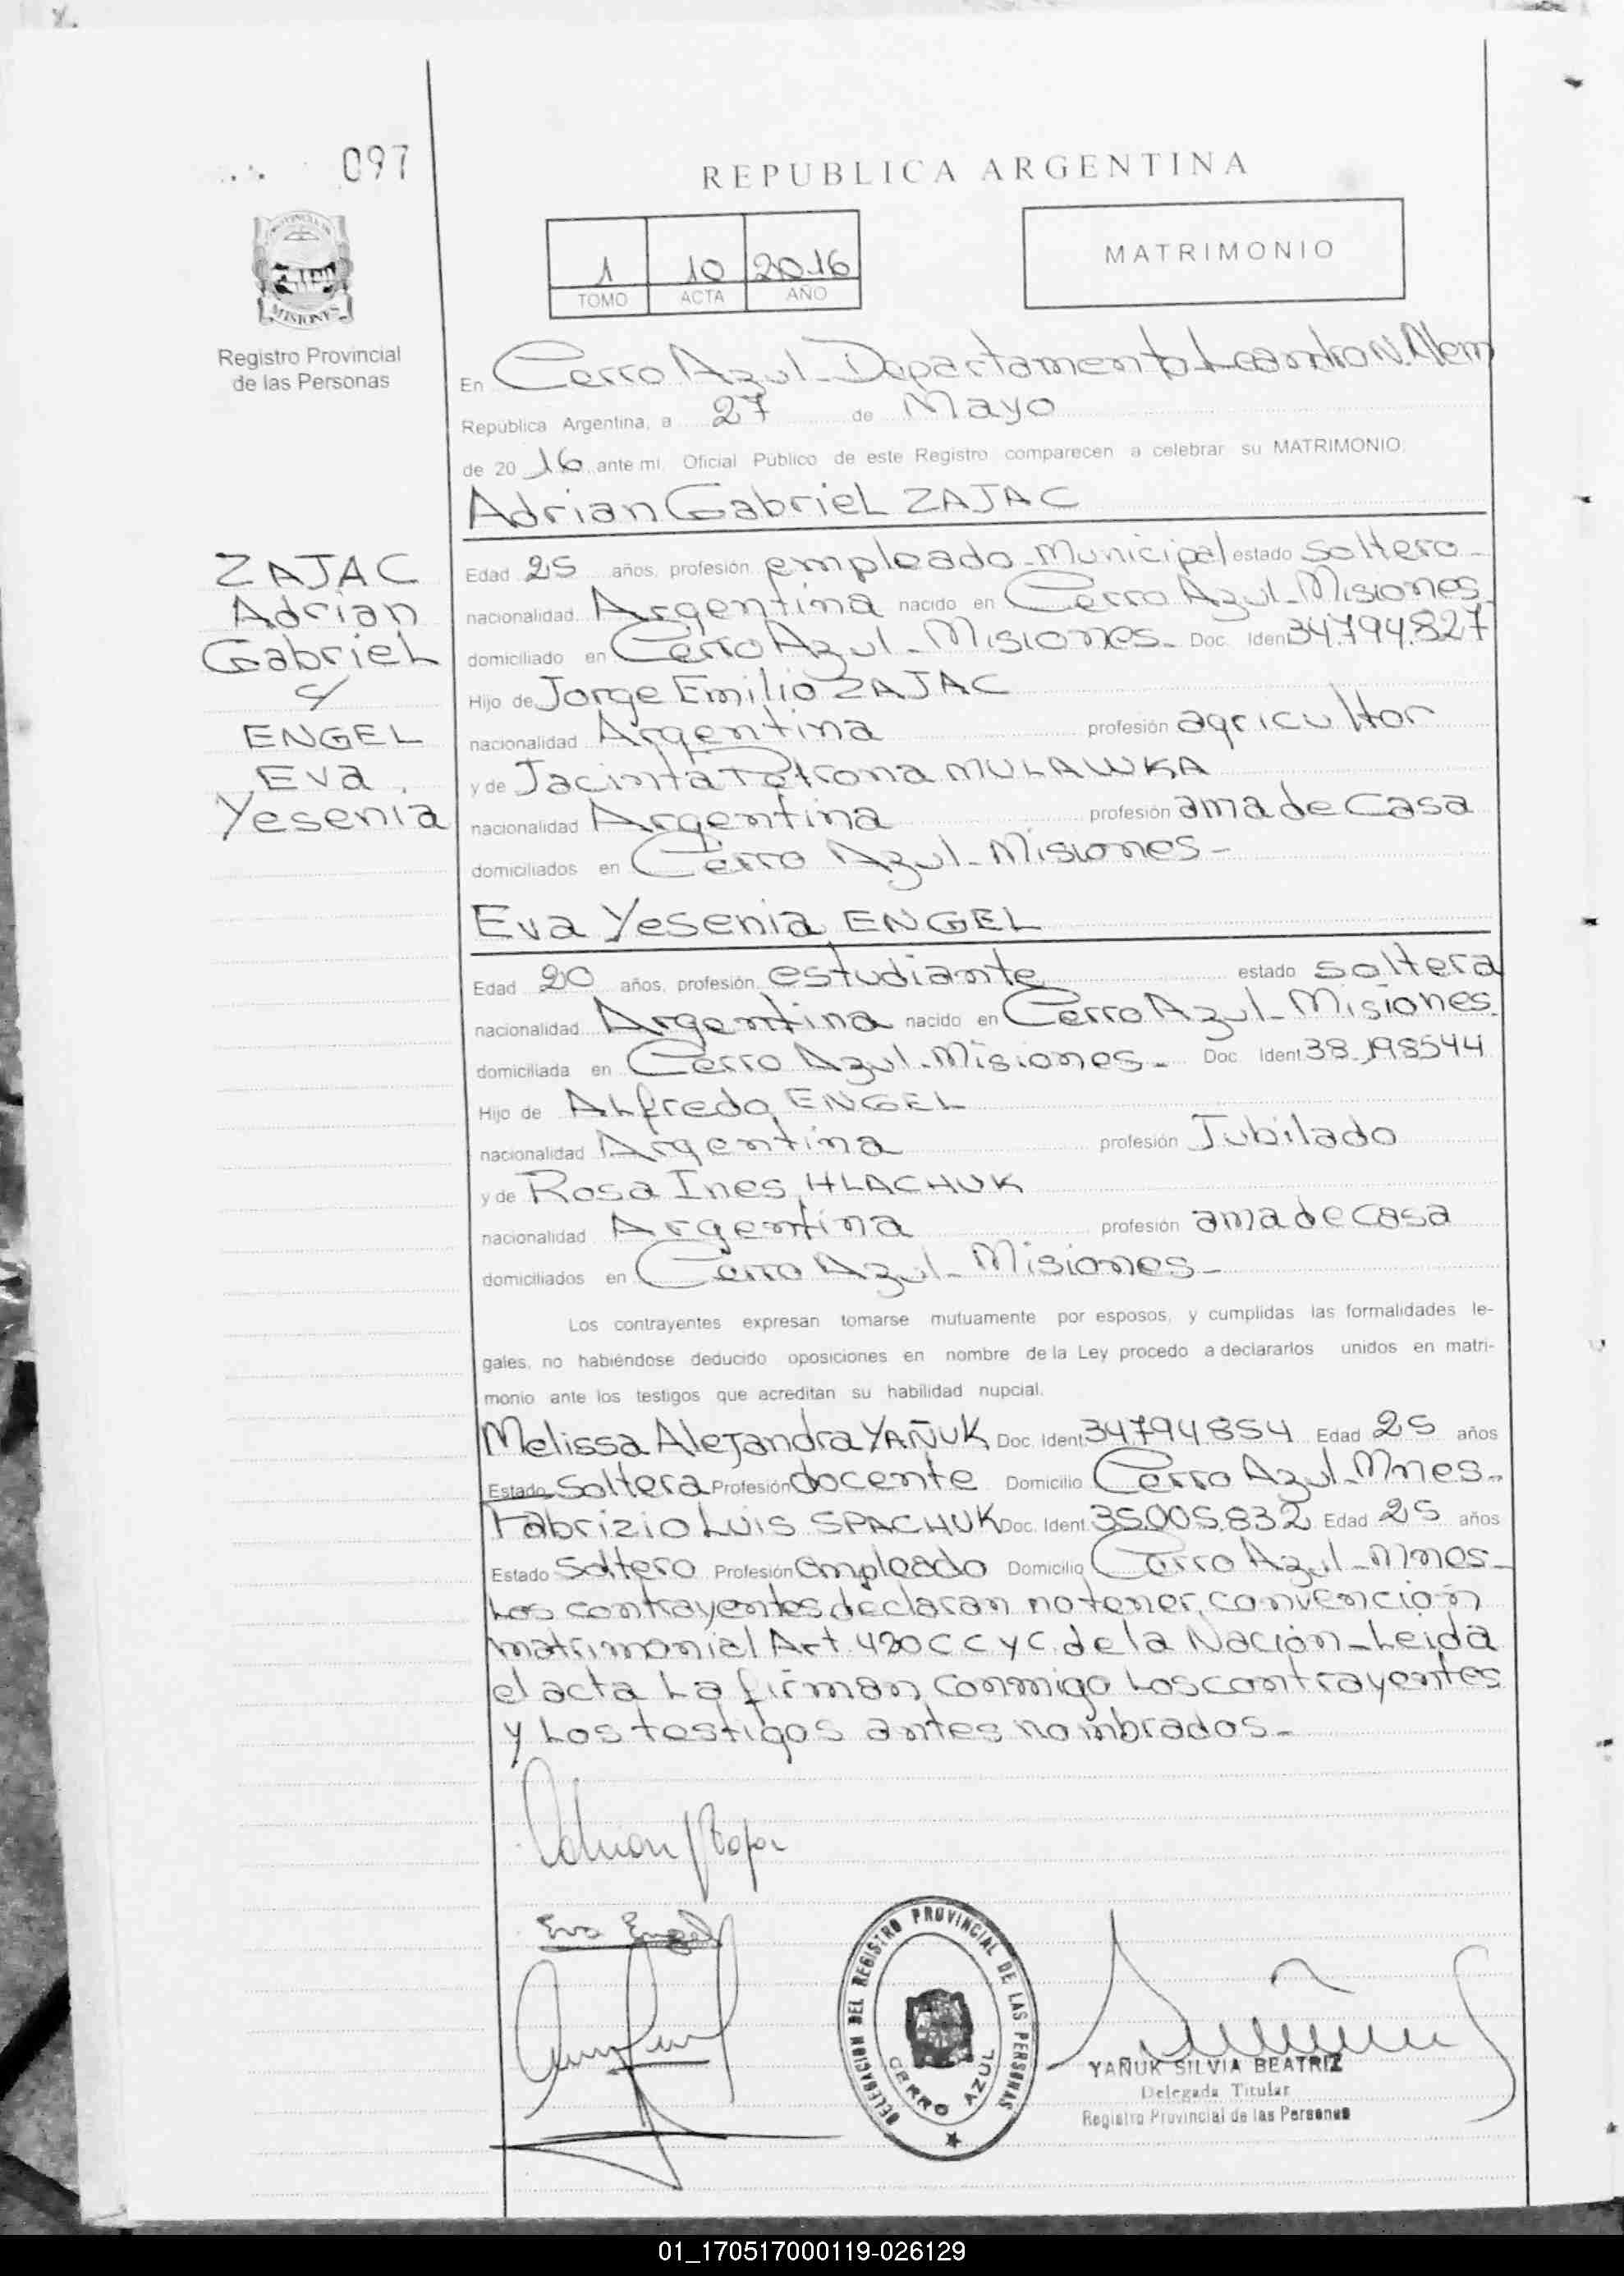 097
REPUBLICA ARGENTINA
PROVINCIA DE
MISIONES
Registro Provincial
de las Personas
1 10 2016
TOMO ACTA AÑO
MATRIMONIO
En Cerro Azul - Departamento Leandro N. Alem
República Argentina, a 27 de Mayo
de 20 16 ante mi, Oficial Público de este Registro comparecen a celebrar su MATRIMONIO,
Adrian Gabriel ZAJAC
ZAJAC
Adrian
Gabriel
c/
ENGEL
Eva
Yesenia
Edad 25 años, profesión empleado Municipal estado soltero -
nacionalidad Argentina nacido en Cerro Azul - Misiones
domiciliado en Cerro Azul - Misiones - Doc. Iden 34.794.827
Hijo de Jorge Emilio ZAJAC
nacionalidad Argentina profesión agricultor
y de Jacinta Petrona MULAWKA
nacionalidad Argentina profesión ama de casa
domiciliados en Cerro Azul - Misiones -
Eva Yesenia ENGEL
Edad 20 años, profesión estudiante estado soltera
nacionalidad Argentina nacido en Cerro Azul - Misiones
domiciliada en Cerro Azul - Misiones - Doc. Ident 38.198544
Hijo de Alfredo ENGEL
nacionalidad Argentina profesión Jubilado
y de Rosa Ines HLACHUK
nacionalidad Argentina profesión ama de casa
domiciliados en Cerro Azul - Misiones -
Los contrayentes expresan tomarse mutuamente por esposos, y cumplidas las formalidades le-
gales, no habiéndose deducido oposiciones en nombre de la Ley procedo a declararlos unidos en matri-
monio ante los testigos que acreditan su habilidad nupcial.
Melissa Alejandra YAÑUK Doc. Ident. 34794854 Edad 25 años
Estado Soltera Profesión docente Domicilio Cerro Azul - Mnes -
Fabrizio Luis SPACHUK Doc. Ident. 35.005.832 Edad 25 años
Estado Soltero Profesión empleado Domicilio Cerro Azul - Mnes -
Los contrayentes declaran no tener convención
matrimonial Art. 420 C C y C. de la Nación - Leida
el acta La firman conmigo Los contrayentes
y Los testigos antes nombrados -
Eva Engel
DELEGACION DEL REGISTRO PROVINCIAL DE LAS PERSONAS
CERRO AZUL
YAÑUK SILVIA BEATRIZ
Delegada Titular
Registro Provincial de las Personas
01_170517000119-026129